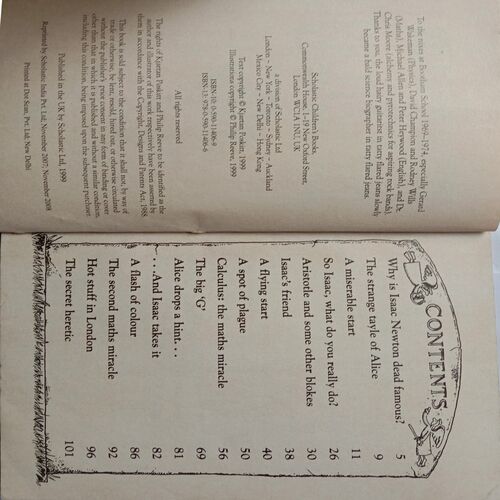 To the sixers at Dovedale School (1969–1971), especially Gerard
Wakeman (Physics), David Champion and Rodney Wills
(Maths), Michael Allen and Peter Heywood (English), and Dr
Chris Moore (alchemy and pyrotechnics for aspiring rock bands).
Thanks to you, the lead-haired guitarist in tatty flared jeans slowly
became a bald science biographer in tatty flared jeans.
Scholastic Children's Books,
Commonwealth House, 1–19 New Oxford Street,
London WC1A 1NU, UK
a division of Scholastic Ltd
London ~ New York ~ Toronto ~ Sydney ~ Auckland
Mexico City ~ New Delhi ~ Hong Kong
Text copyright © Kjartan Poskitt, 1999
Illustrations copyright © Philip Reeve, 1999
ISBN-10: 0-590-11406-9
ISBN-13: 978-0-590-11406-6
All rights reserved
The rights of Kjartan Poskitt and Philip Reeve to be identified as the
author and illustrator of this work respectively have been asserted by
them in accordance with the Copyright, Designs and Patents Act, 1988.
This book is sold subject to the condition that it shall not, by way of
trade or otherwise, be lent, resold, hired out, or otherwise circulated
without the publisher's prior consent in any form of binding or cover
other than that in which it is published and without a similar condition,
including this condition, being imposed upon the subsequent purchaser.
Published in the UK by Scholastic Ltd, 1999
Reprinted by Scholastic India Pvt. Ltd, November 2007; November 2008
Printed at Dot Scan, Pvt. Ltd, New Delhi
CONTENTS
Why is Isaac Newton dead famous? 5
The strange tayle of Alice 9
A miserable start 11
So Isaac, what do you really do? 26
Aristotle and some other blokes 30
Isaac's friend 38
A flying start 40
A spot of plague 50
Calculus: the maths miracle 56
The big 'G' 69
Alice drops a hint. . . 81
. . .And Isaac takes it 82
A flash of colour 86
The second maths miracle 92
Hot stuff in London 96
The secret heretic 101